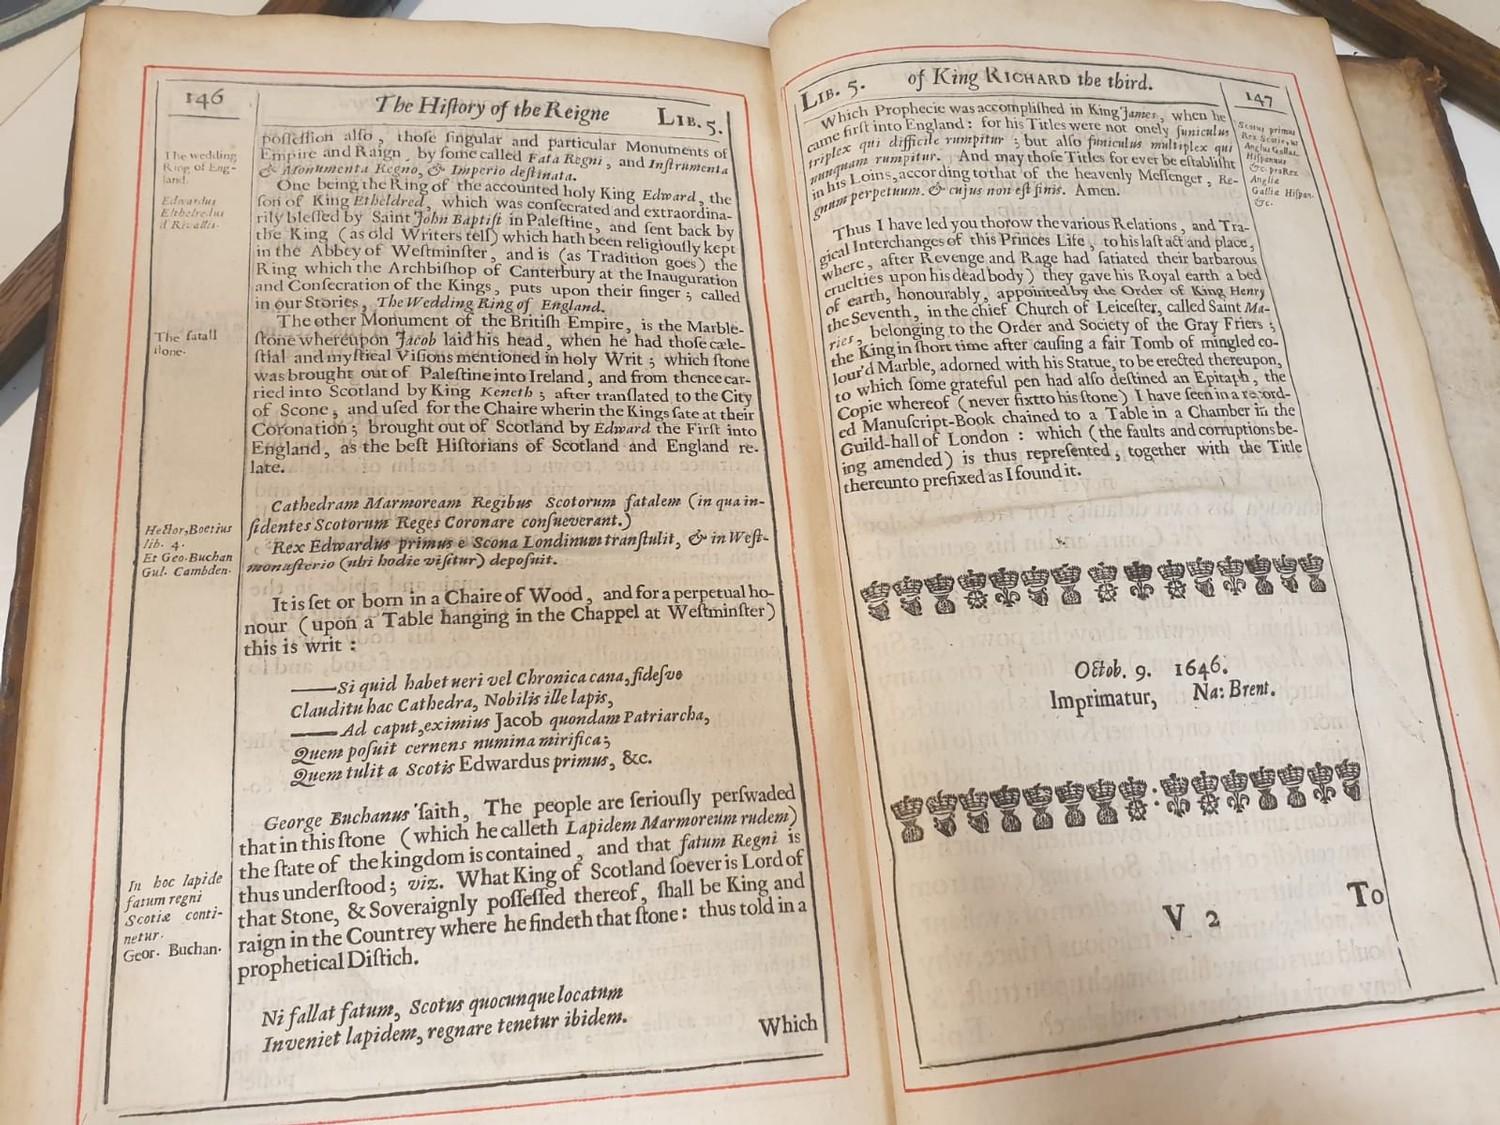 146
The Hiſtory of the Reigne LIB. 5.
poſſeſſion alſo, thoſe ſingular and particular Monuments of
Empire and Raign, by ſome called Fata Regni, and Inſtrumenta
& Monumenta Regno, & Imperio deſtinata.
The wedding
Ring of Eng-
land.
One being the Ring of the accounted holy King Edward, the
ſon of King Etheldred, which was conſecrated and extraordina-
rily bleſſed by Saint John Baptiſt in Paleſtine, and ſent back by
the King (as old Writers tell) which hath been religiouſly kept
in the Abbey of Weſtminſter, and is (as Tradition goes) the
Ring which the Archbiſhop of Canterbury at the Inauguration
and Conſecration of the Kings, puts upon their finger; called
in our Stories, The Wedding Ring of England.
Edwardus
The fatall
ſtone.
The other Monument of the Britiſh Empire, is the Marble-
ſtone whereupon Jacob laid his head, when he had thoſe cæle-
ſtial and myſtical Viſions mentioned in holy Writ; which ſtone
was brought out of Paleſtine into Ireland, and from thence car-
ried into Scotland by King Keneth; after tranſlated to the City
of Scone, and uſed for the Chaire wherin the Kings ſate at their
Coronation; brought out of Scotland by Edward the Firſt into
England, as the beſt Hiſtorians of Scotland and England re-
late.
Cathedram Marmoream Regibus Scotorum fatalem (in qua in-
ſidentes Scotorum Reges Coronare conſueverant.)
Rex Edwardus primus e Scona Londinum tranſtulit, & in Weſt-
monaſterio (ubi hodie viſitur) depoſuit.
Hector, Boetius
lib. 4.
Et Geo. Buchan
Gul. Cambden.
It is ſet or born in a Chaire of Wood, and for a perpetual ho-
nour (upon a Table hanging in the Chappel at Weſtminſter)
this is writ:
——Si quid habet veri vel Chronica cana, fideſve
Clauditu hac Cathedra, Nobilis ille lapis,
——Ad caput, eximius Jacob quondam Patriarcha,
Quem poſuit cernens numina mirifica;
Quem tulit a Scotis Edwardus primus, &c.
George Buchanus ſaith, The people are ſeriouſly perſwaded
that in this ſtone (which he calleth Lapidem Marmoreum rudem)
the ſtate of the kingdom is contained, and that fatum Regni is
thus underſtood; viz. What King of Scotland ſoever is Lord of
that Stone, & Soveraignly poſſeſſed thereof, ſhall be King and
raign in the Countrey where he findeth that ſtone: thus told in a
prophetical Diſtich.
In hoc lapide
fatum regni
Scotiæ conti-
netur.
Geor. Buchan.
Ni fallat fatum, Scotus quocunque locatum
Inveniet lapidem, regnare tenetur ibidem.
Which
LIB. 5. of King RICHARD the third.
147
Which Prophecie was accompliſhed in King James, when he
came firſt into England: for his Titles were not onely funiculus
triplex qui difficile rumpitur; but alſo funiculus multiplex qui
nunquam rumpitur. And may thoſe Titles for ever be eſtabliſht
in his Loins, according to that of the heavenly Meſſenger, Re-
gnum perpetuum. & cujus non eſt finis. Amen.
primus
Hiſpannus
&c. pro Rex
Angliæ
Gallia Hiſpan.
&c.
Thus I have led you thorow the various Relations, and Tra-
gical Interchanges of this Princes Life, to his laſt act and place,
where, after Revenge and Rage had ſatiated their barbarous
cruelties upon his dead body) they gave his Royal earth a bed
of earth, honourably, appointed by the Order of King Henry
the Seventh, in the chief Church of Leiceſter, called Saint Ma-
ries, belonging to the Order and Society of the Gray Friers;
the King in ſhort time after cauſing a fair Tomb of mingled co-
lour'd Marble, adorned with his Statue, to be erected thereupon,
to which ſome grateful pen had alſo deſtined an Epitaph, the
Copie whereof (never fixt to his ſtone) I have ſeen in a record-
ed Manuſcript-Book chained to a Table in a Chamber in the
Guild-hall of London: which (the faults and corruptions be-
ing amended) is thus repreſented, together with the Title
thereunto prefixed as I found it.
Octob. 9. 1646.
Imprimatur, Na: Brent.
V 2
To